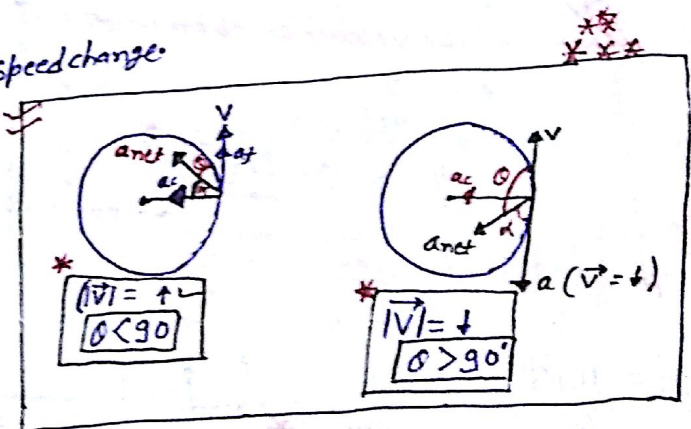 Speed change.
V
at
anet
θ
ac
α
|V⃗| = ↑
θ<90
V
ac
θ
anet
α
a (V⃗=↓)
|V⃗| = ↓
θ>90°